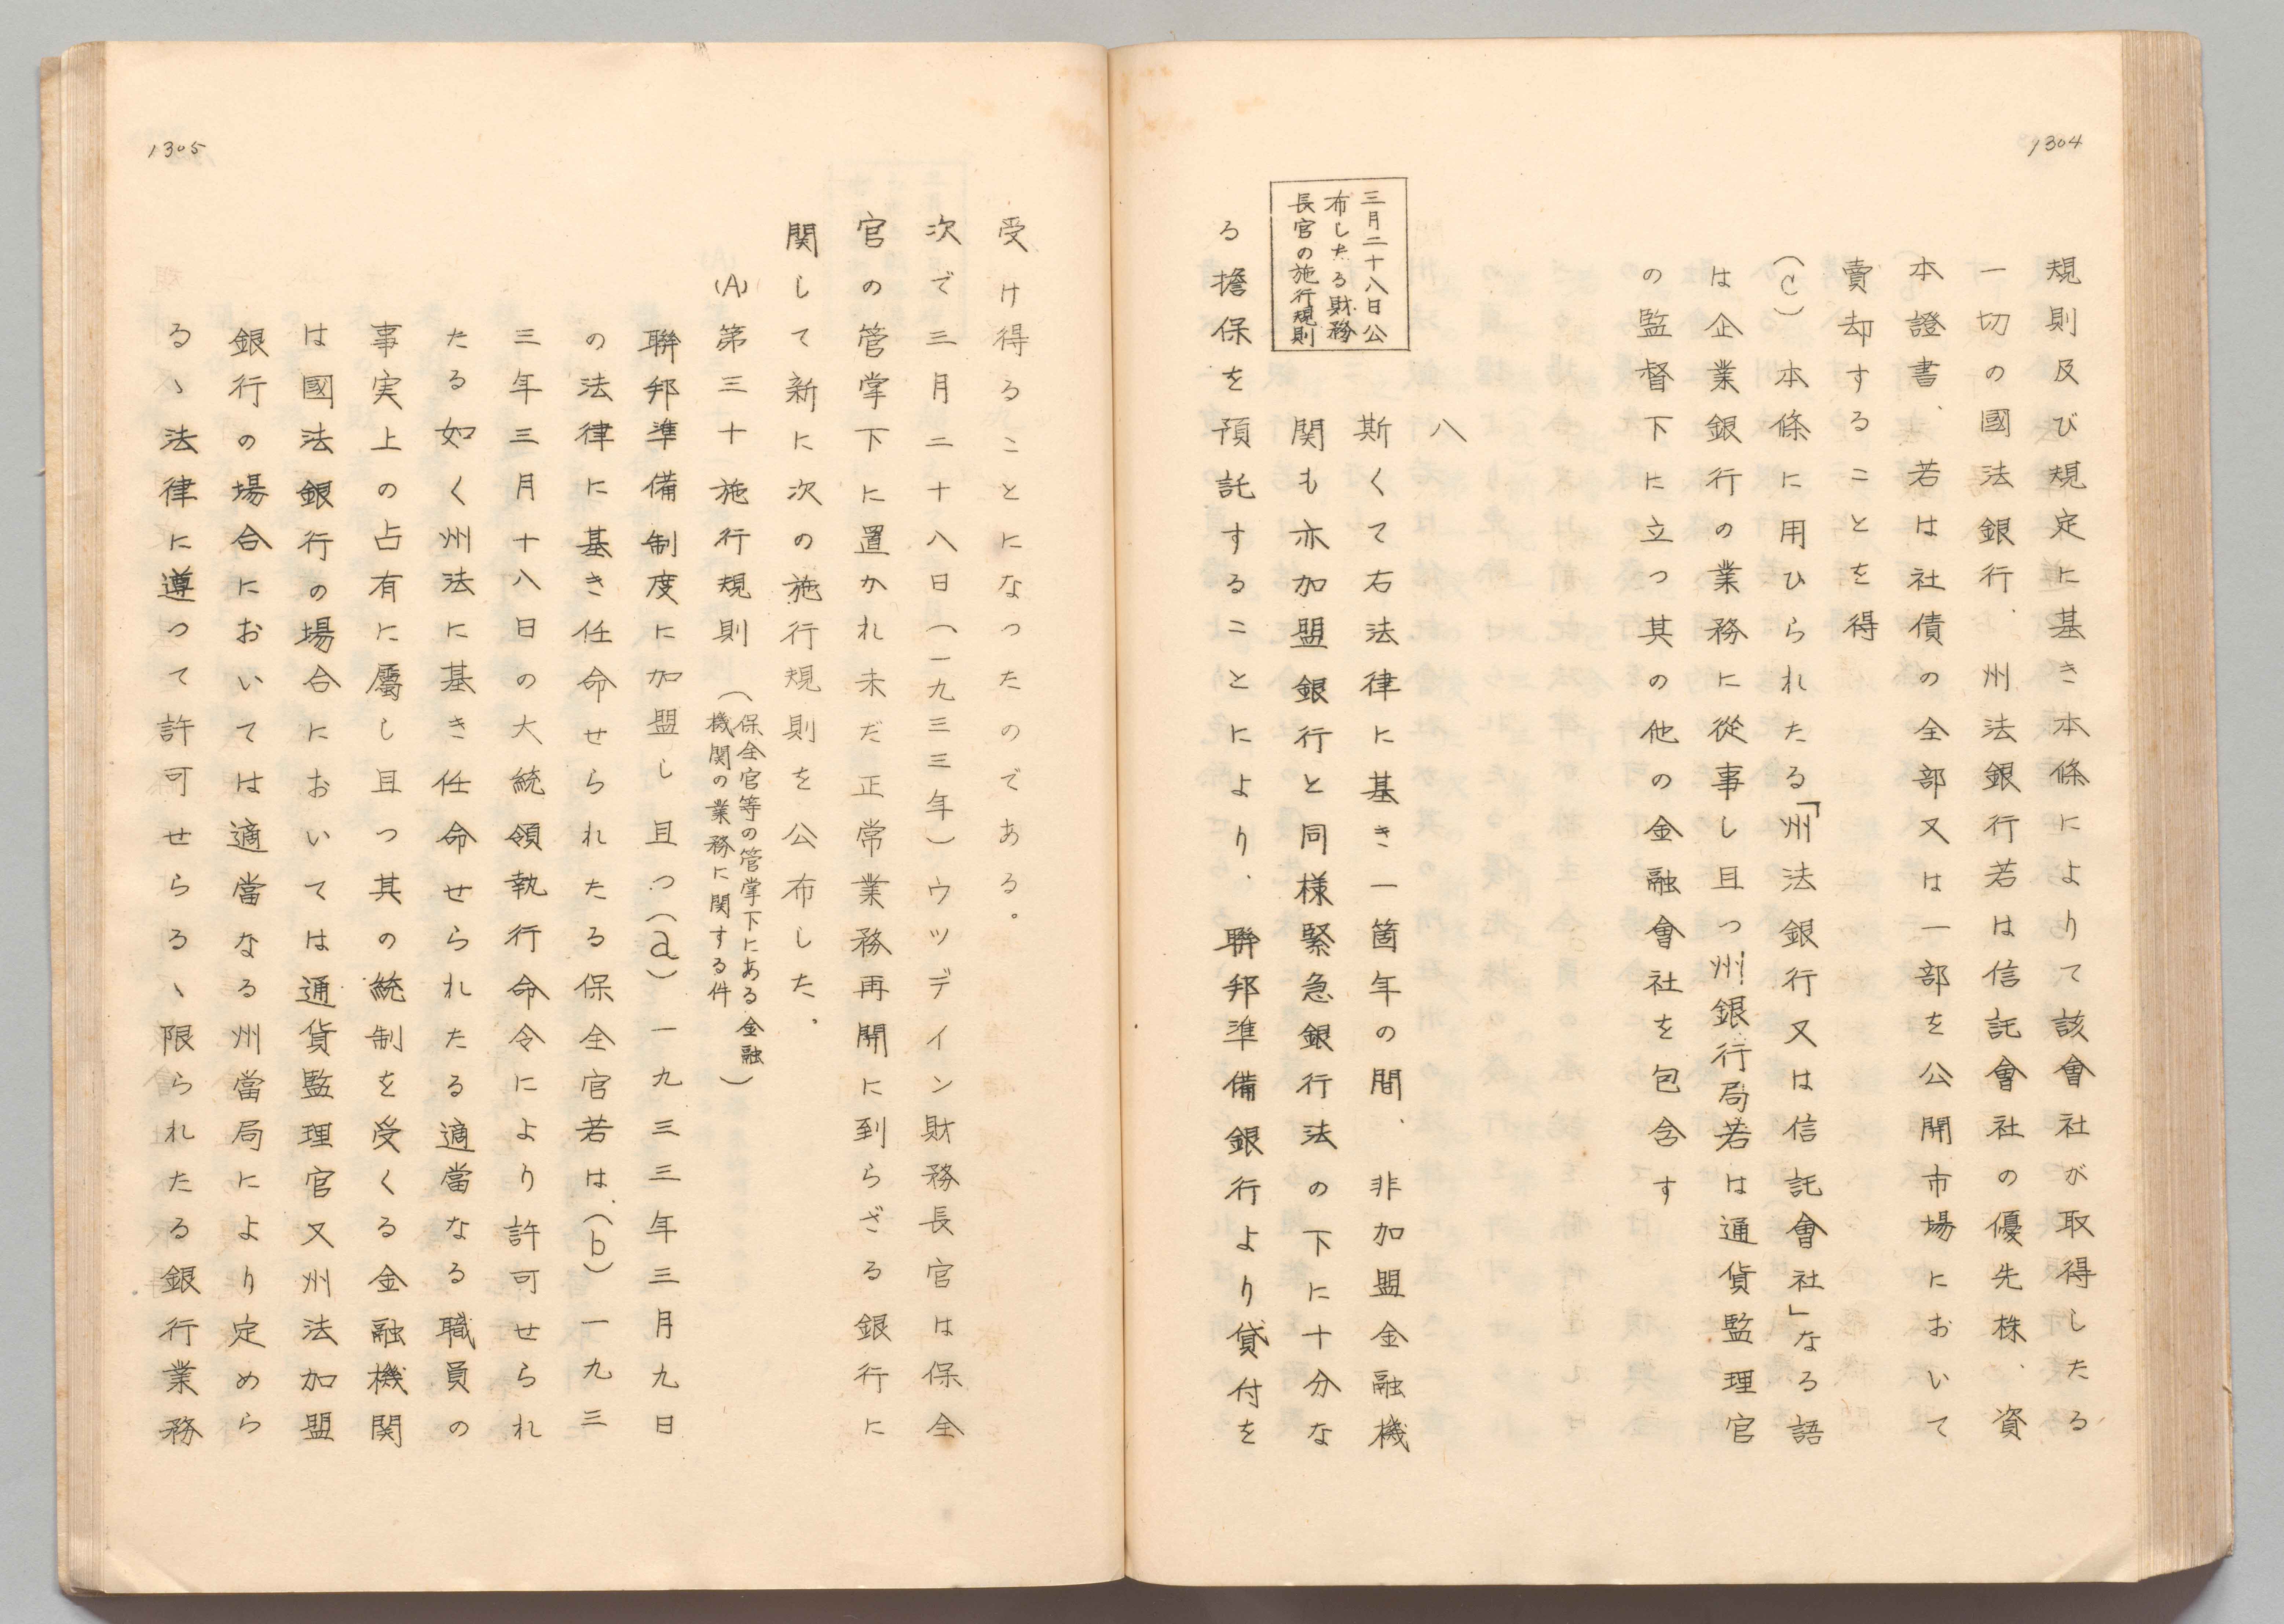 1304
規則及び規定に基き本條によりて該會社が取得したる
一切の國法銀行、州法銀行若は信託會社の優先株、資
本證書、若は社債の全部又は一部を公開市場において
賣却することを得
(C) 本條に用ひられたる「州法銀行又は信託會社」なる語
は企業銀行の業務に從事し且つ州銀行局若は通貨監理官
の監督下に立つ其の他の金融會社を包含す
八
三月二十八日公
布したる財務
長官の施行規則
斯くて右法律に基き一箇年の間、非加盟金融機
関も亦加盟銀行と同様緊急銀行法の下に十分な
る擔保を預託することにより、聯邦準備銀行より貸付を
1305
受け得ることになつたのである。
次で三月二十八日(一九三三年)ウッデイン財務長官は保全
官の管掌下に置かれ未だ正常業務再開に到らざる銀行に
関して新に次の施行規則を公布した。
(A) 第三十施行規則
(保全官等の管掌下にある金融
機関の業務に関する件)
聯邦準備制度に加盟し且つ(a)一九三三年三月九日
の法律に基き任命せられたる保全官若は、(b)一九三
三年三月十八日の大統領執行命令により許可せられ
たる如く州法に基き任命せられたる適當なる職員の
事実上の占有に屬し且つ其の統制を受くる金融機関
は國法銀行の場合においては通貨監理官又州法加盟
銀行の場合においては適當なる州當局により定めら
るヽ法律に遵つて許可せらるヽ限られたる銀行業務